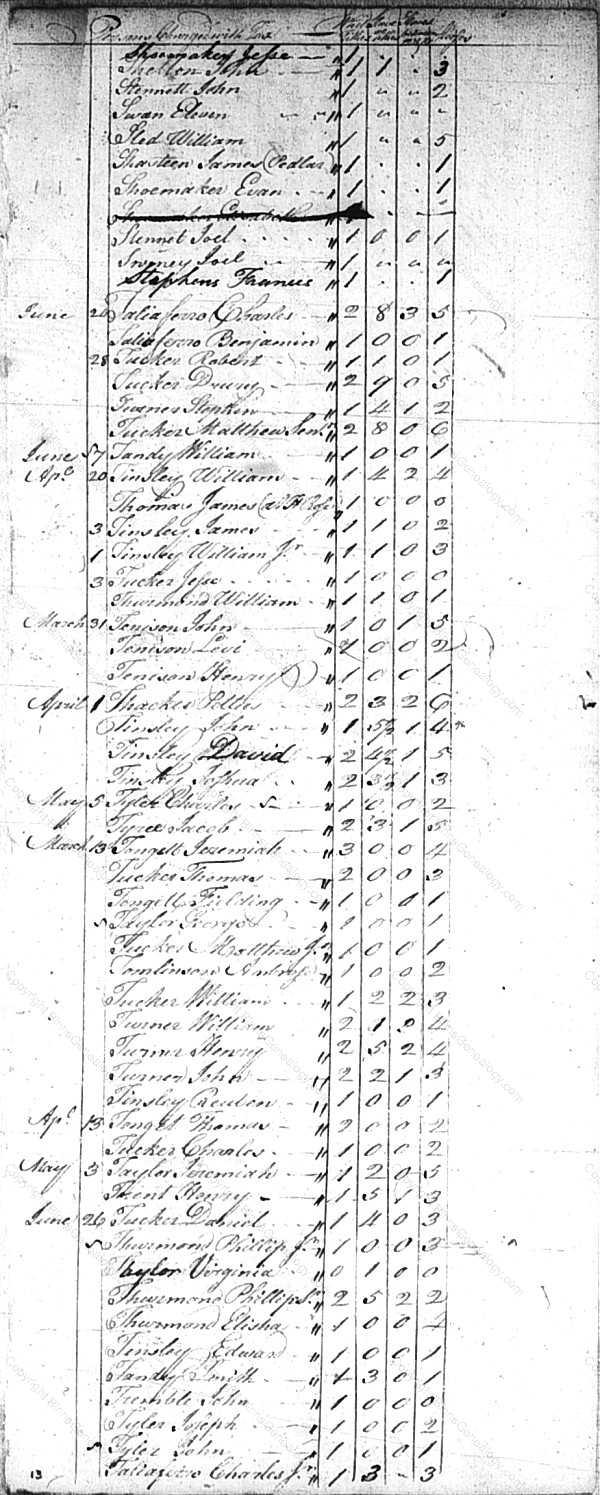 Persons Charged with Tax
Shoemaker Jesse — " 1 . . 1
Shelton John — " 1 1 . 3
Stennett John " 1 " " 2
Swan Eleven " 1 " " "
Sled William " 1 " " 5
Shasteen James (Pedlar) " 1 . . 1
Shoemaker Evan " 1 . . 1
Stennet Joel " 1 0 0 1
Swiney Joel " 1 " " "
Stephens Francis " 1 . . 1
June 26 Taliaferro Charles " 2 8 3 5
Taliaferro Benjamin " 1 0 0 1
28 Tucker Robert " 1 1 0 1
Tucker Drury " 2 9 0 5
Turner Stephen " 1 4 1 2
Tucker Matthew Senr " 2 8 0 6
June 57 Tandy William " 1 0 0 1
Apl 20 Tinsley William " 1 4 2 4
Thomas James " 1 0 0 0
3 Tinsley James " 1 1 0 2
1 Tinsley William Jr " 1 1 0 3
3 Tucker Jesse " 1 0 0 0
Thurmond William " 1 1 0 1
March 31 Tenison John " 1 0 1 5
Tenison Levi " 1 0 0 2
Tenison Henry " 1 0 0 1
April 1 Thacker Pettis " 2 3 2 6
Tinsley John " 1 5 1/2 1 4
Tinsley David " 2 4 1/2 1 5
Tinsley Joshua " 2 3 1/2 1 3
May 5 Tyler Charles " 1 0 0 2
Tyree Jacob " 2 3 1 5
March 13 Tongett Jeremiah " 3 0 0 4
Tucker Thomas " 2 0 0 3
Tongett Fielding " 1 0 0 1
Taylor George " 1 0 0 1
Tucker Matthew Jr " 1 0 0 1
Tomlinson Ambrose " 1 0 0 2
Tucker William " 1 2 2 3
Turner William " 2 1 0 4
Turner Henry " 2 5 2 4
Turner John " 2 2 1 3
Tinsley Reuben " 1 0 0 1
Apl 13 Tonget Thomas " 2 0 0 2
Tucker Charles " 1 0 0 2
May 3 Taylor Jeremiah " 1 2 0 5
Trent Henry " 1 5 1 3
June 26 Tucker Daniel " 1 4 0 3
Thurmond Phillip Jr " 1 0 0 3
Taylor Virginia " 0 1 0 0
Thurmond Phillip Sr " 2 5 2 2
Thurmond Elisha " 1 0 0 4
Tinsley Edward " 1 0 0 1
Tandy Smith " 1 3 0 1
Tremble John " 1 0 0 0
Tyler Joseph " 1 0 0 2
Tyler John " 1 0 0 1
Taliaferro Charles Jr " 1 3 - 3
13